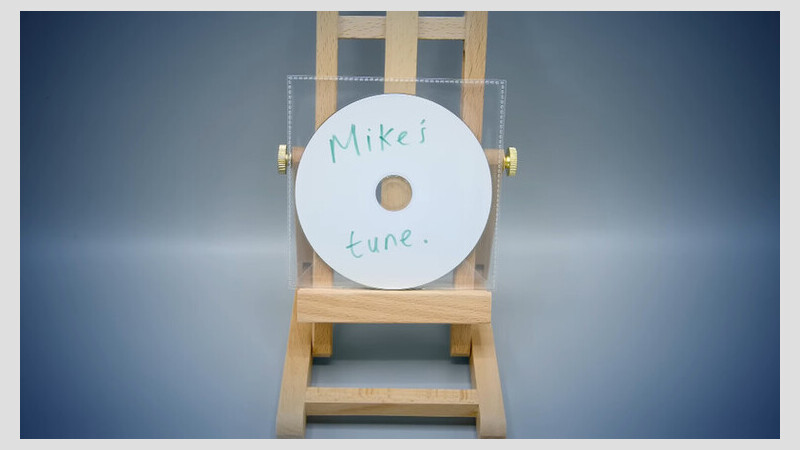 Mike's
tune.